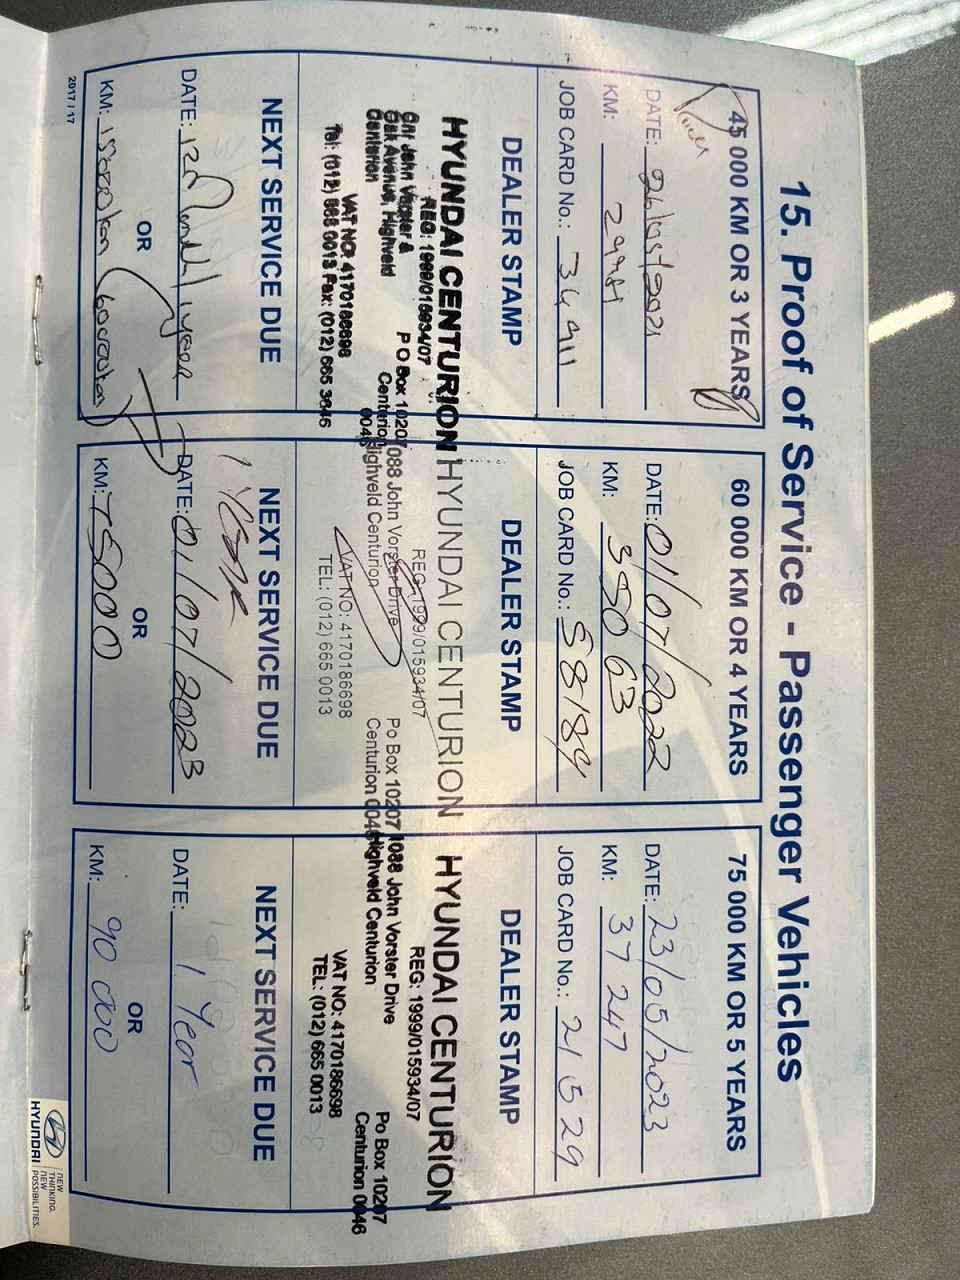 15. Proof of Service - Passenger Vehicles
45 000 KM OR 3 YEARS
DATE: 26/05/2021
KM: 29981
JOB CARD No.: 34911
DEALER STAMP
HYUNDAI CENTURION
REG: 1999/015934/07
Cnr John Vorster &
Oak Avenue, Highveld
Centurion
P O Box 10207
Centurion
0046
VAT NO: 4170186698
Tel: (012) 665 0013 Fax: (012) 665 3646
NEXT SERVICE DUE
DATE:
OR
KM:
60 000 KM OR 4 YEARS
DATE: 01/07/2022
KM: 35063
JOB CARD No.: S8184
DEALER STAMP
HYUNDAI CENTURION
REG: 1999/015934/07
1088 John Vorster Drive
Highveld Centurion
Po Box 10207
Centurion 0046
VAT NO: 4170186698
TEL: (012) 665 0013
NEXT SERVICE DUE
1 YEAR
DATE: 01/07/2023
OR
KM: 75000
75 000 KM OR 5 YEARS
DATE: 23/05/2023
KM: 37 247
JOB CARD No.: 21529
DEALER STAMP
HYUNDAI CENTURION
REG: 1999/015934/07
1088 John Vorster Drive
Highveld Centurion
Po Box 10207
Centurion 0046
VAT NO: 4170186698
TEL: (012) 665 0013
NEXT SERVICE DUE
DATE: 1 Year
OR
KM: 90 000
2017 / 17
HYUNDAI
NEW
THINKING.
NEW
POSSIBILITIES.